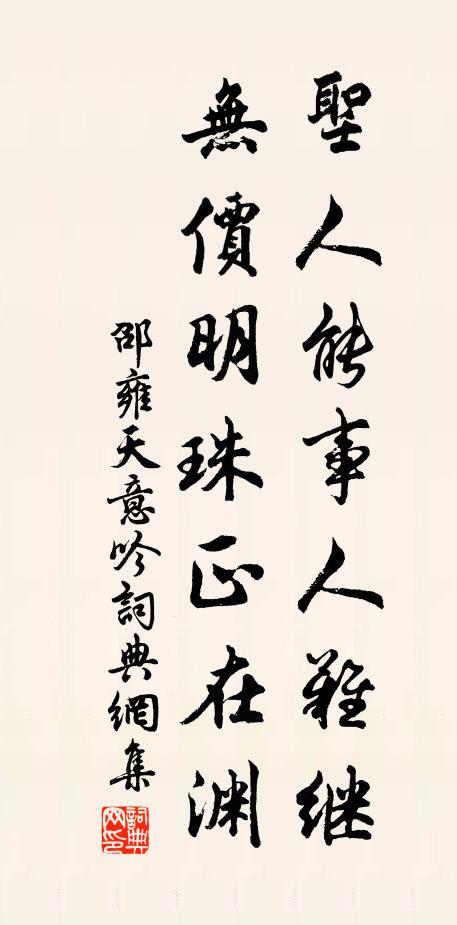 聖人能事人難继
無價明珠正在渊
邵雍天意吟詞典網集
詞典網印